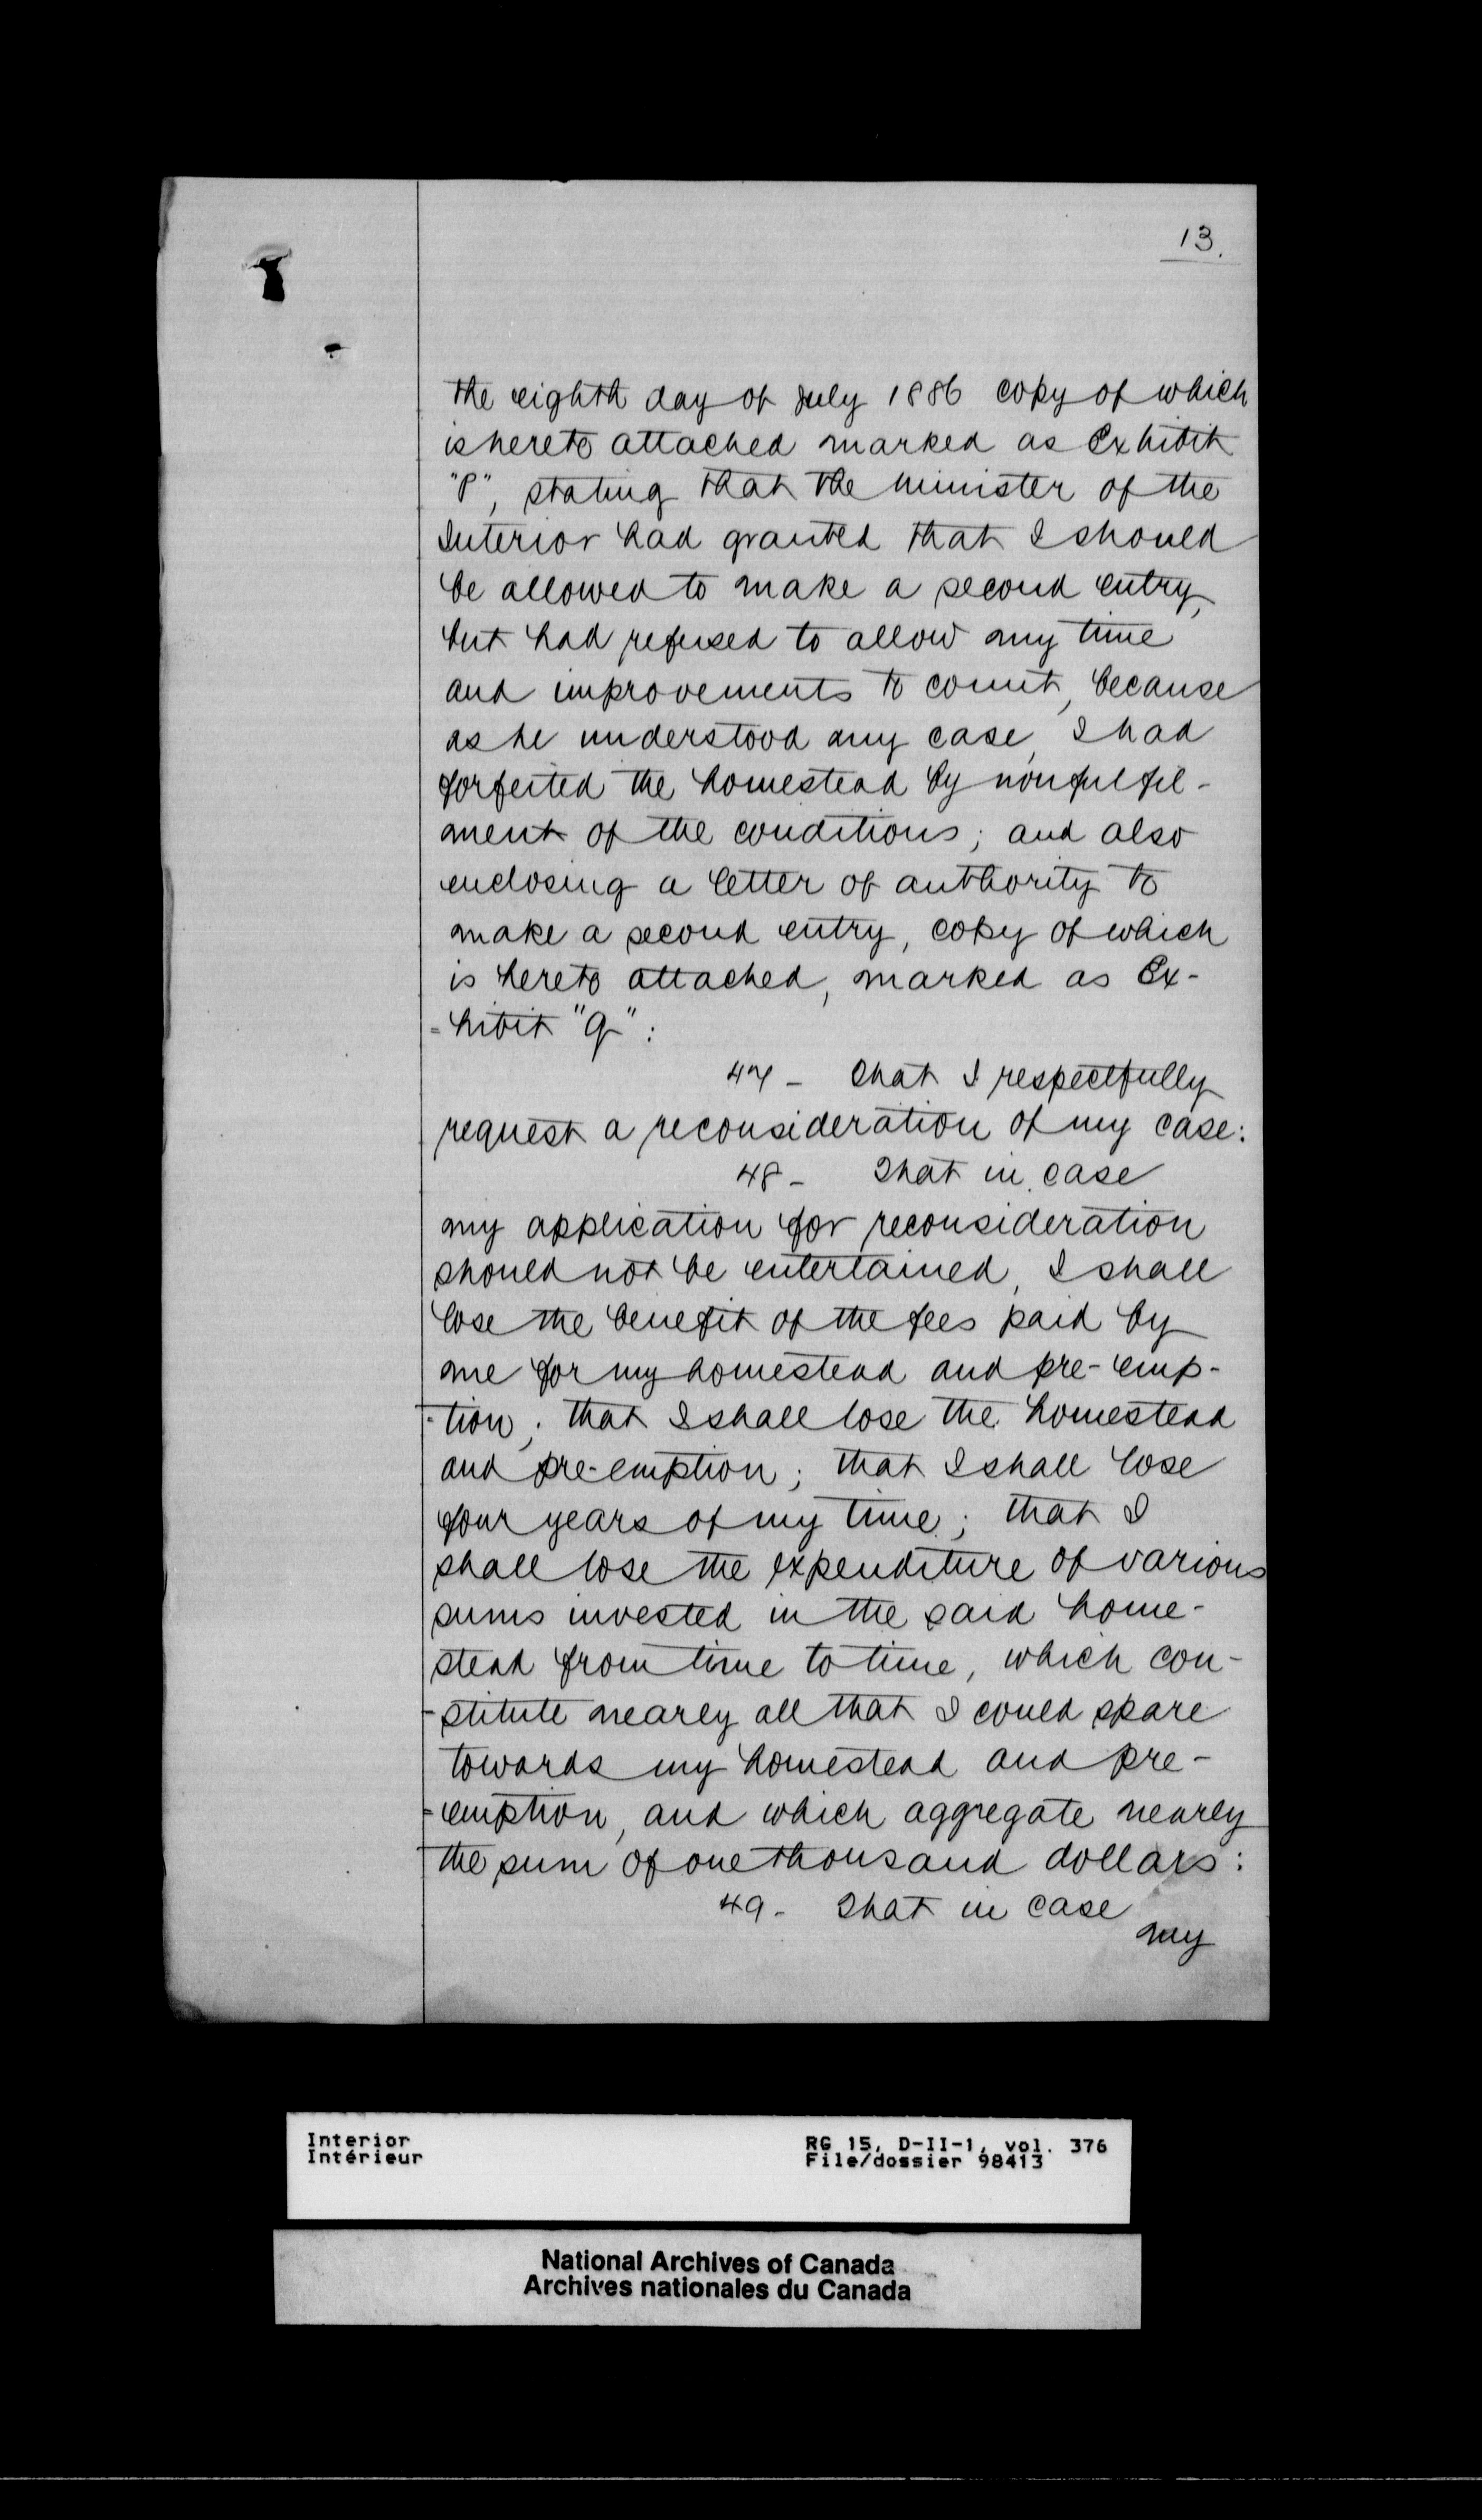 13.
the eighth day of July 1886 copy of which
is hereto attached marked as Exhibit
"P", stating that the Minister of the
Interior had granted that I should
be allowed to make a second entry,
but had refused to allow my time
and improvements to count, because
as he understood my case, I had
forfeited the homestead by nonfulfil-
ment of the conditions; and also
enclosing a letter of authority to
make a second entry, copy of which
is hereto attached, marked as Ex-
=hibit "Q":
47 - That I respectfully
request a reconsideration of my case:
48 - That in case
my application for reconsideration
should not be entertained, I shall
lose the benefit of the fees paid by
me for my homestead and pre-emp-
-tion; that I shall lose the homestead
and pre-emption; that I shall lose
four years of my time; that I
shall lose the expenditure of various
sums invested in the said home-
stead from time to time, which con-
-stitute nearly all that I could spare
towards my homestead and pre-
=emption, and which aggregate nearly
the sum of one thousand dollars:
49 - That in case
my
Interior RG 15, D-II-1, vol. 376
Intérieur File/dossier 98413
National Archives of Canada
Archives nationales du Canada